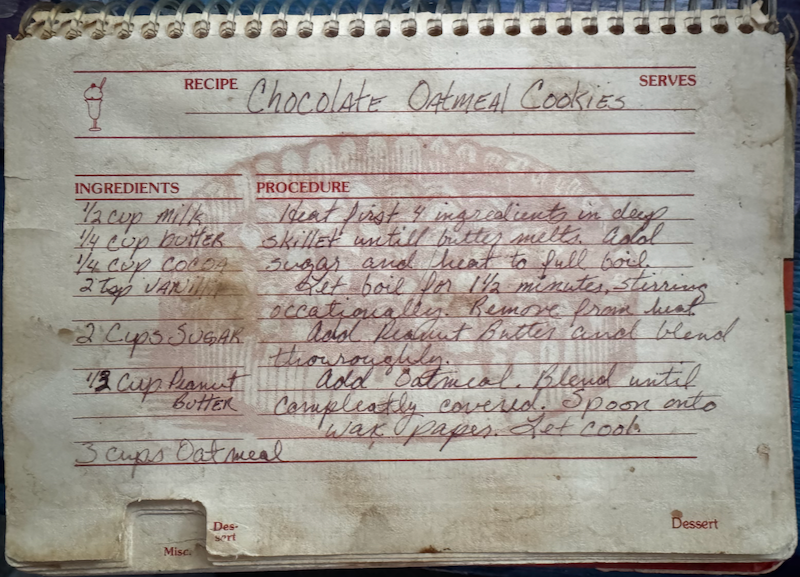 RECIPE Chocolate Oatmeal Cookies SERVES
INGREDIENTS PROCEDURE
1/2 cup milk Heat first 4 ingredients in deep
1/4 cup butter skillet untill butter melts. Add
1/4 cup cocoa sugar and heat to full boil
2 tsp vanilla Let boil for 1 1/2 minutes, stirring
occationally. Remove from heat
2 Cups Sugar Add Peanut Butter and blend
thouroughly.
1/3 Cup Peanut Add Oatmeal. Blend until
Butter compleatly covered. Spoon onto
wax paper. Let cool.
3 cups Oatmeal
Misc.
Des-
sert
Dessert